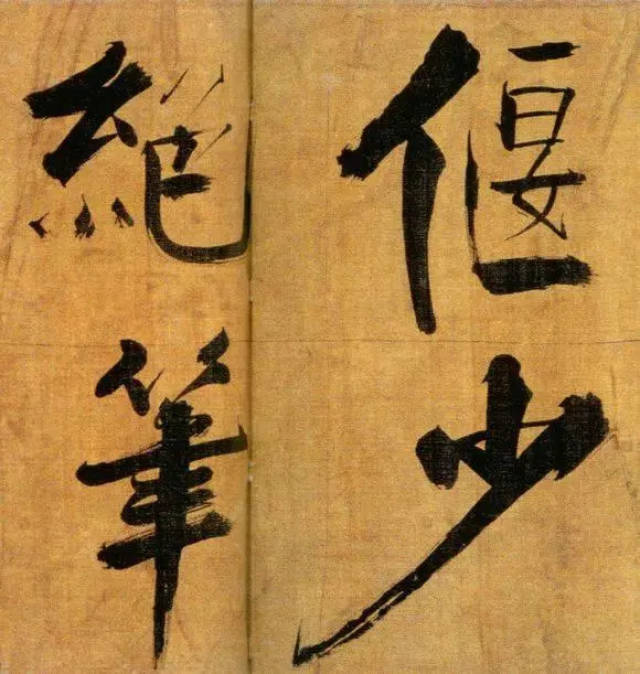 偃少
絶筆